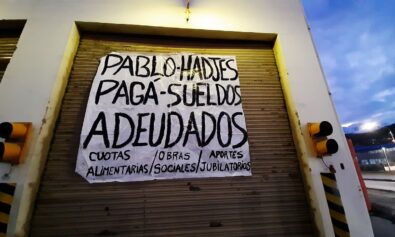 PABLO-HADJES
PAGÁ-SUELDOS
ADEUDADOS
CUOTAS /OBRAS / APORTES
ALIMENTARIAS/SOCIALES/JUBILATORIOS